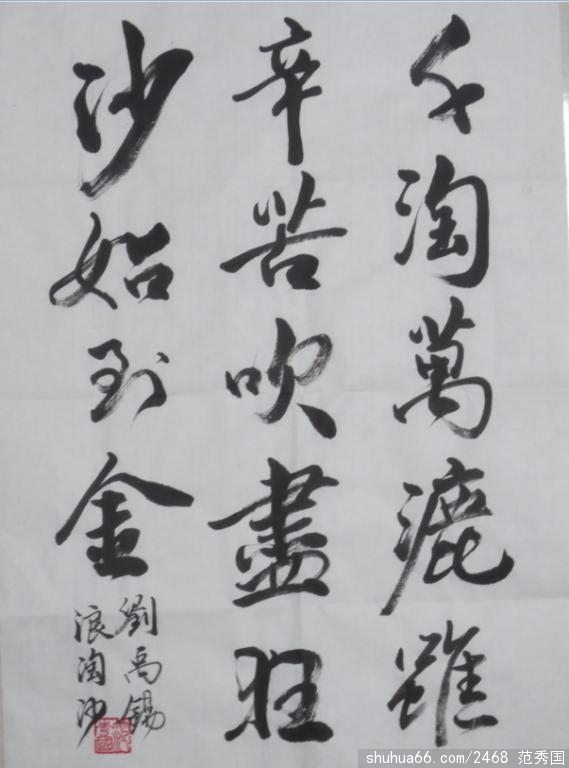 千淘萬漉雖
辛苦吹盡狂
沙始到金
劉禹錫
浪淘沙
shuhua66.com/2468 范秀国